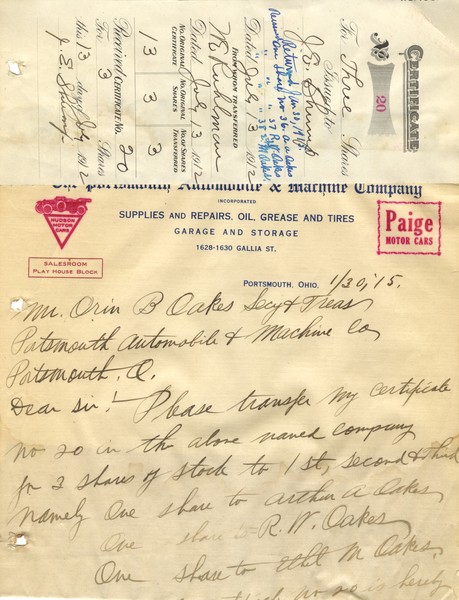 CERTIFICATE
No 20
For Three Shares
Issued to
J. E. Shump
Dated July 13 1912
Returned Jan 30, 1915
FROM WHOM TRANSFERRED
Dated July 3 1912
NO. ORIGINAL CERTIFICATE
NO. ORIGINAL SHARES
NO. OF SHARES TRANSFERRED
13
3
3
Received Certificate No. 20
For 3 Shares
this 13 day of July 1912
J. E. Shump
The Portsmouth Automobile & Machine Company
INCORPORATED
SUPPLIES AND REPAIRS, OIL, GREASE AND TIRES
GARAGE AND STORAGE
1628-1630 GALLIA ST.
HUDSON MOTOR CARS
SALESROOM
PLAY HOUSE BLOCK
Paige
MOTOR CARS
PORTSMOUTH, OHIO, 1/30,'15.
Mr. Orin B Oakes Secy & Treas
Portsmouth Automobile & Machine Co
Portsmouth, O.
Dear Sir! Please transfer my certificate
no 20 in the above named company
for 3 shares of stock to 1st, second & third
namely One share to Arthur A Oakes
One share to R. W. Oakes
One share to Ethel M Oakes
no 20 is hereby